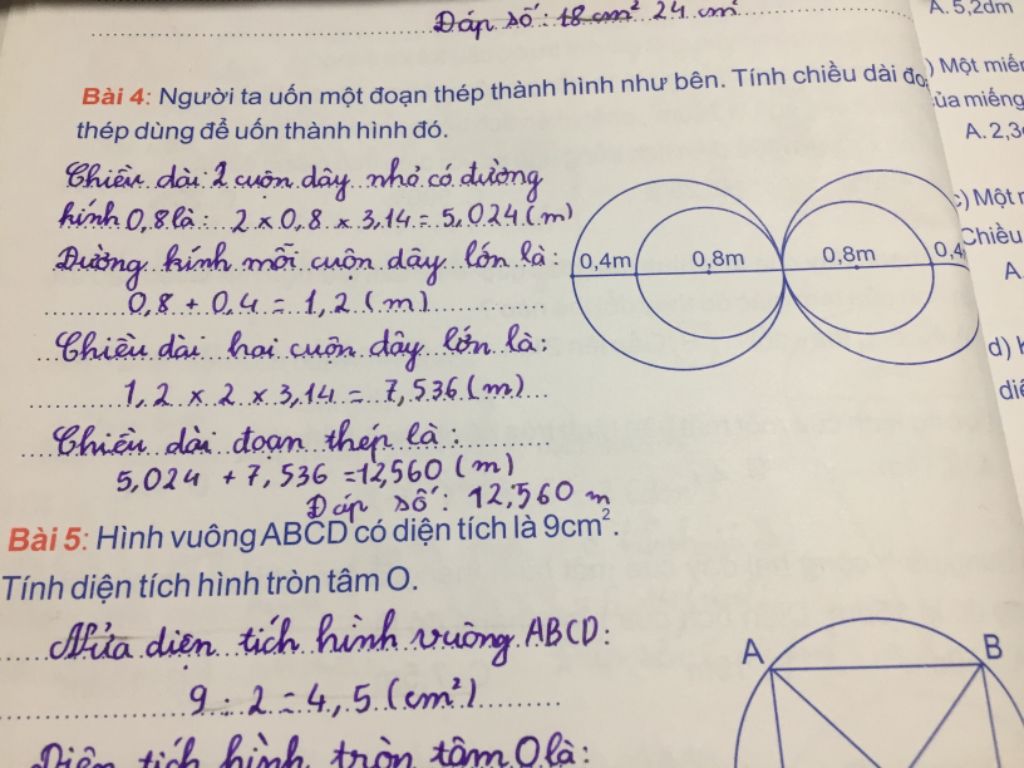 Đáp số: 18 cm² 24 cm²
A. 5,2dm
Bài 4: Người ta uốn một đoạn thép thành hình như bên. Tính chiều dài
thép dùng để uốn thành hình đó.
Chiều dài 2 cuộn dây nhỏ có đường
kính 0,8 là: 2 x 0,8 x 3,14 = 5,024 (m)
Đường kính mỗi cuộn dây lớn là:
0,8 + 0,4 = 1,2 (m)
Chiều dài hai cuộn dây lớn là:
1,2 x 2 x 3,14 = 7,536 (m)
Chiều dài đoạn thép là:
5,024 + 7,536 = 12,560 (m)
Đáp số: 12,560 m
0,4m 0,8m 0,8m 0,4
) Một
của miếng
A. 2,3
c) Một
Chiều
A.
d)
Bài 5: Hình vuông ABCD có diện tích là 9cm².
Tính diện tích hình tròn tâm O.
Nửa diện tích hình vuông ABCD:
9 : 2 = 4,5 (cm²)
Diện tích hình tròn tâm O là:
A B